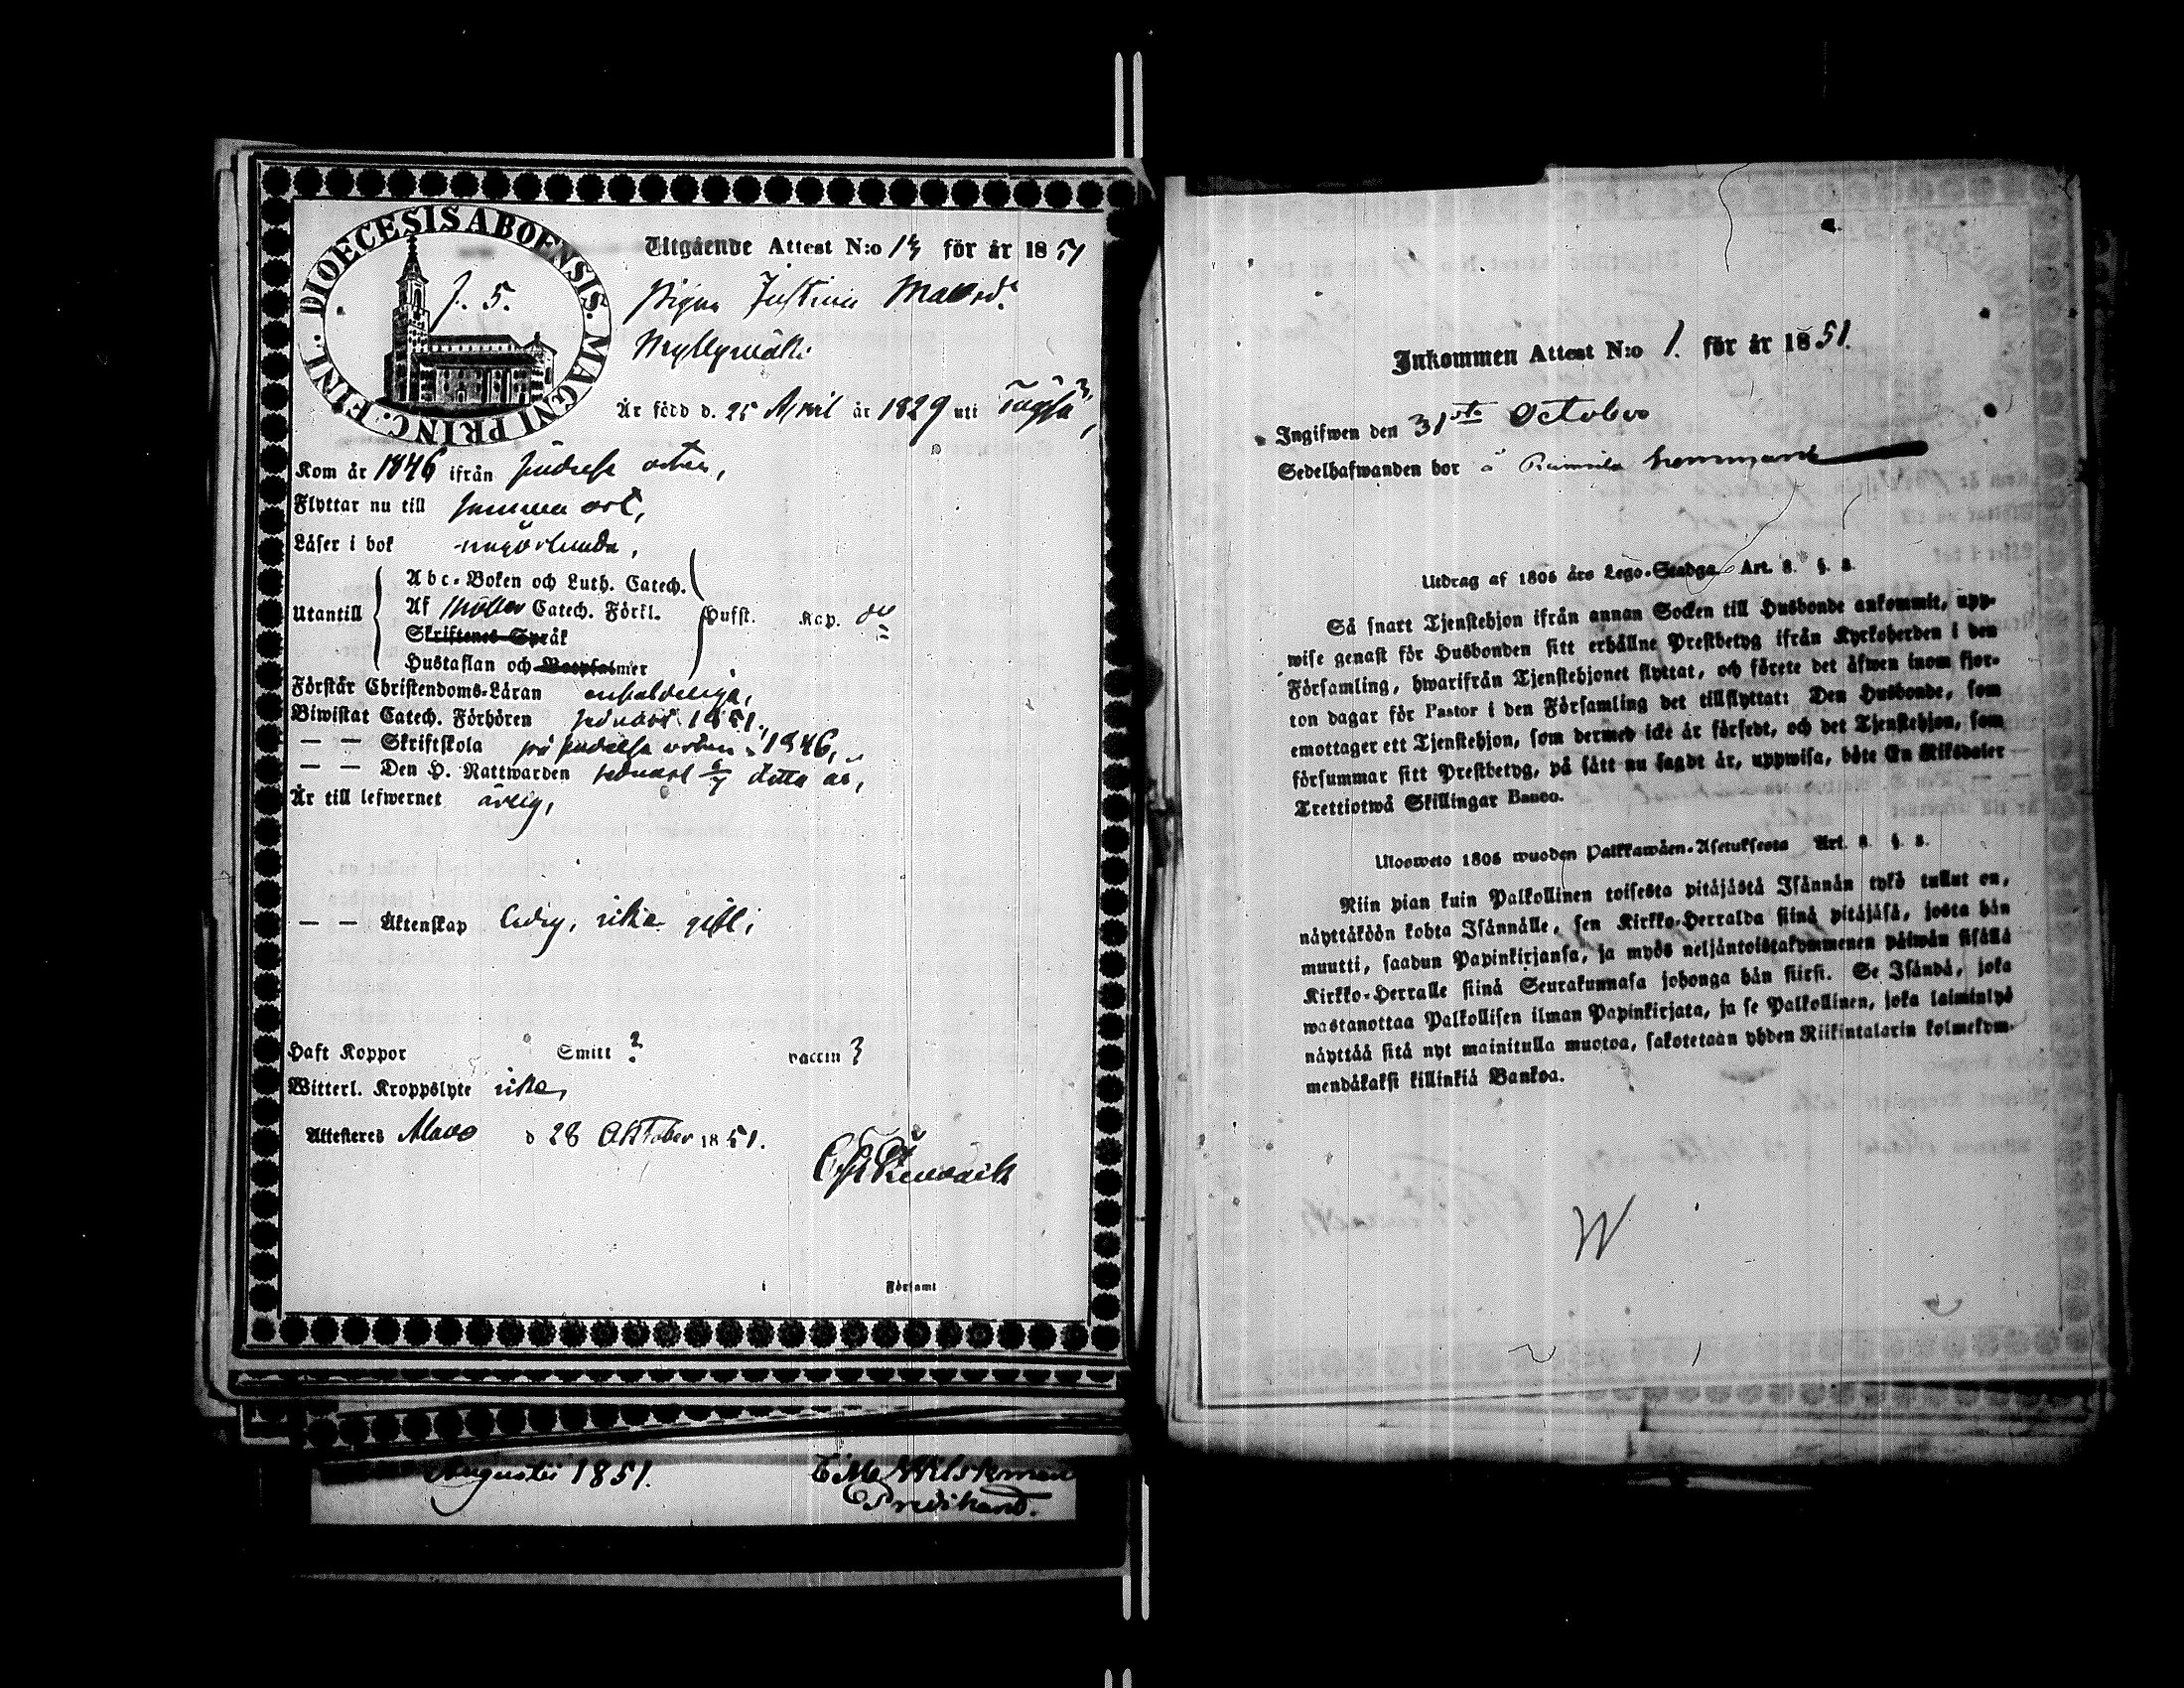 DIOECESIS ABOENSIS. MAGNI PRINC. FINL.
J. 5.
Utgående Attest N:o 13 för år 1851
Pigan Justina Matsd:r
Myllymäki
Är född d. 25 April år 1829 uti
Kom år 1846 ifrån
Flyttar nu till samma ort,
Läser i bok någorlunda,
Abc-Boken och Luth. Catech.
Utantill Af Möllers Catech. Förkl. Husst. Kap. do
Skriftenes Språk
Hustaflan och Botpsalmer
Förstår Christendoms-Läran enfaldeliga,
Biwistat Catech. Förhören senast 1851,
— — Skriftskola på 1846,
— — Den H. Nattwarden senast 6/7 detta år,
Är till lefwernet ärlig,
— — Äktenskap ledig, icke gift;
Haft Koppor Smitt ? vaccin ?
Witterl. Kroppslyte icke,
Attesteras Alavo d 28 Oktober 1851.
i Församl
Augusti 1851.
Predikant.
Inkommen Attest N:o 1. för år 1851.
Ingifwen den 31sta October
Sedelhafwanden bor å hemmand
Utdrag af 1805 års Lego-Stadga Art. 8. §. 8.
Så snart Tjenstehjon ifrån annan Socken till Husbonde ankommit, upp-
wise genast för Husbonden sitt erhållne Prestbetyg ifrån Kyrkoherden i den
Församling, hwarifrån Tjenstehjonet flyttat, och förete det äfwen inom fjor-
ton dagar för Pastor i den Församling det tillflyttat: Den Husbonde, som
emottager ett Tjenstehjon, som dermed icke är försedt, och det Tjenstehjon, som
försummar sitt Prestbetyg, på sätt nu sagdt är, uppwisa, böte En Riksdaler
Trettiotwå Skillingar Banco.
Ulosweto 1805 wuoden Palkkawäen-Asetuksesta Art. 8 §. 8.
Niin pian kuin Palkollinen toisesta pitäjästä Isännän tykö tullut on,
näyttäköön kohta Isännälle, sen Kirkko-Herralda siinä pitäjäsä, josta hän
muutti, saadun Papinkirjansa, ja myös neljäntoistakymmenen päiwän sisällä
Kirkko-Herralle siinä Seurakunnasa johonga hän siirsi. Se Isändä, joka
wastanottaa Palkollisen ilman Papinkirjata, ja se Palkollinen, joka laiminlyö
näyttää sitä nyt mainitulla muotoa, sakotetaan yhden Riikintalarin kolmekym-
mendäkaksi killinkiä Bankoa.
W